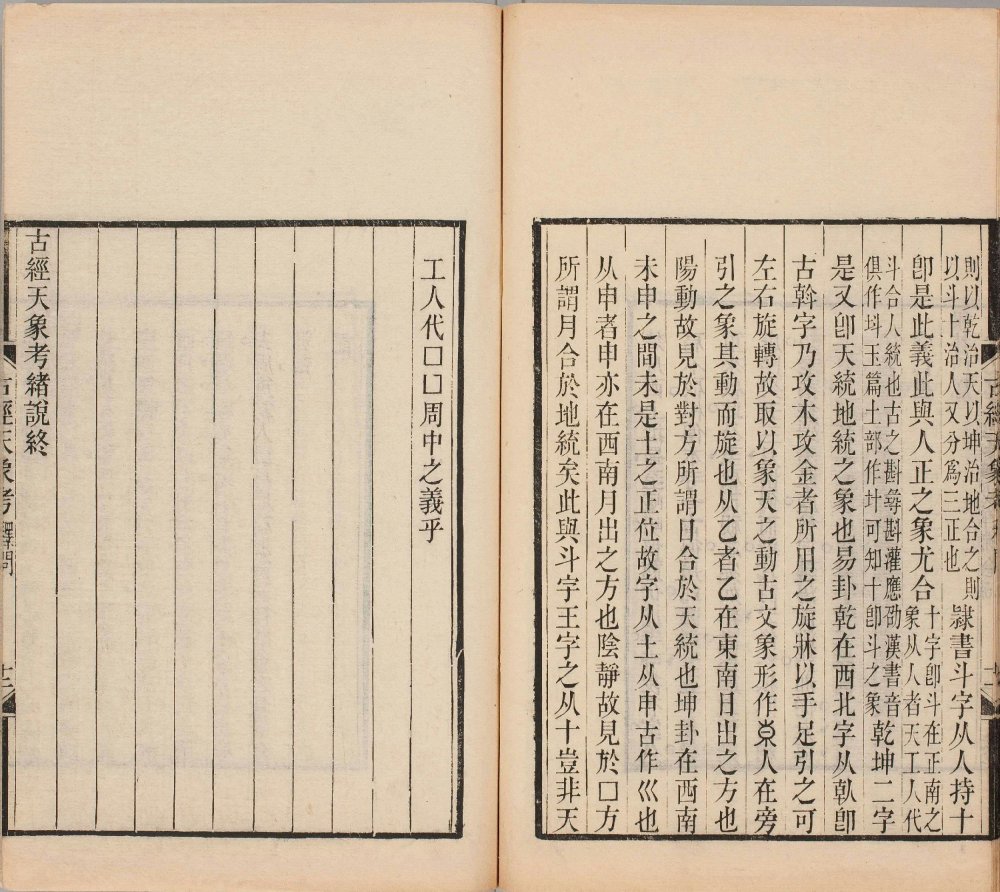 則以乾治天以坤治地合之則
以斗十治人又分爲三正也
隷書斗字从人持十
卽是此義此與人正之象尤合
十字卽斗在正南之
象从人者天工人代
斗合人統也古之斟每斟灌應劭漢書音
俱作抖玉篇土部作圤可知十卽斗之象
乾坤二字
是又卽天統地統之象也易卦乾在西北字从倝卽
古斡字乃攻木攻金者所用之旋牀以手足引之可
左右旋轉故取以象天之動古文象形作人在旁
引之象其動而旋也从乙者乙在東南日出之方也
陽動故見於對方所謂日合於天統也坤卦在西南
未申之間未是土之正位故字从土从申古作巛也
从申者申亦在西南月出之方也陰靜故見於口方
所謂月合於地統矣此與斗字王字之从十豈非天
工人代口凵周中之義乎
古經天象考緒說終
古經天象考
十二